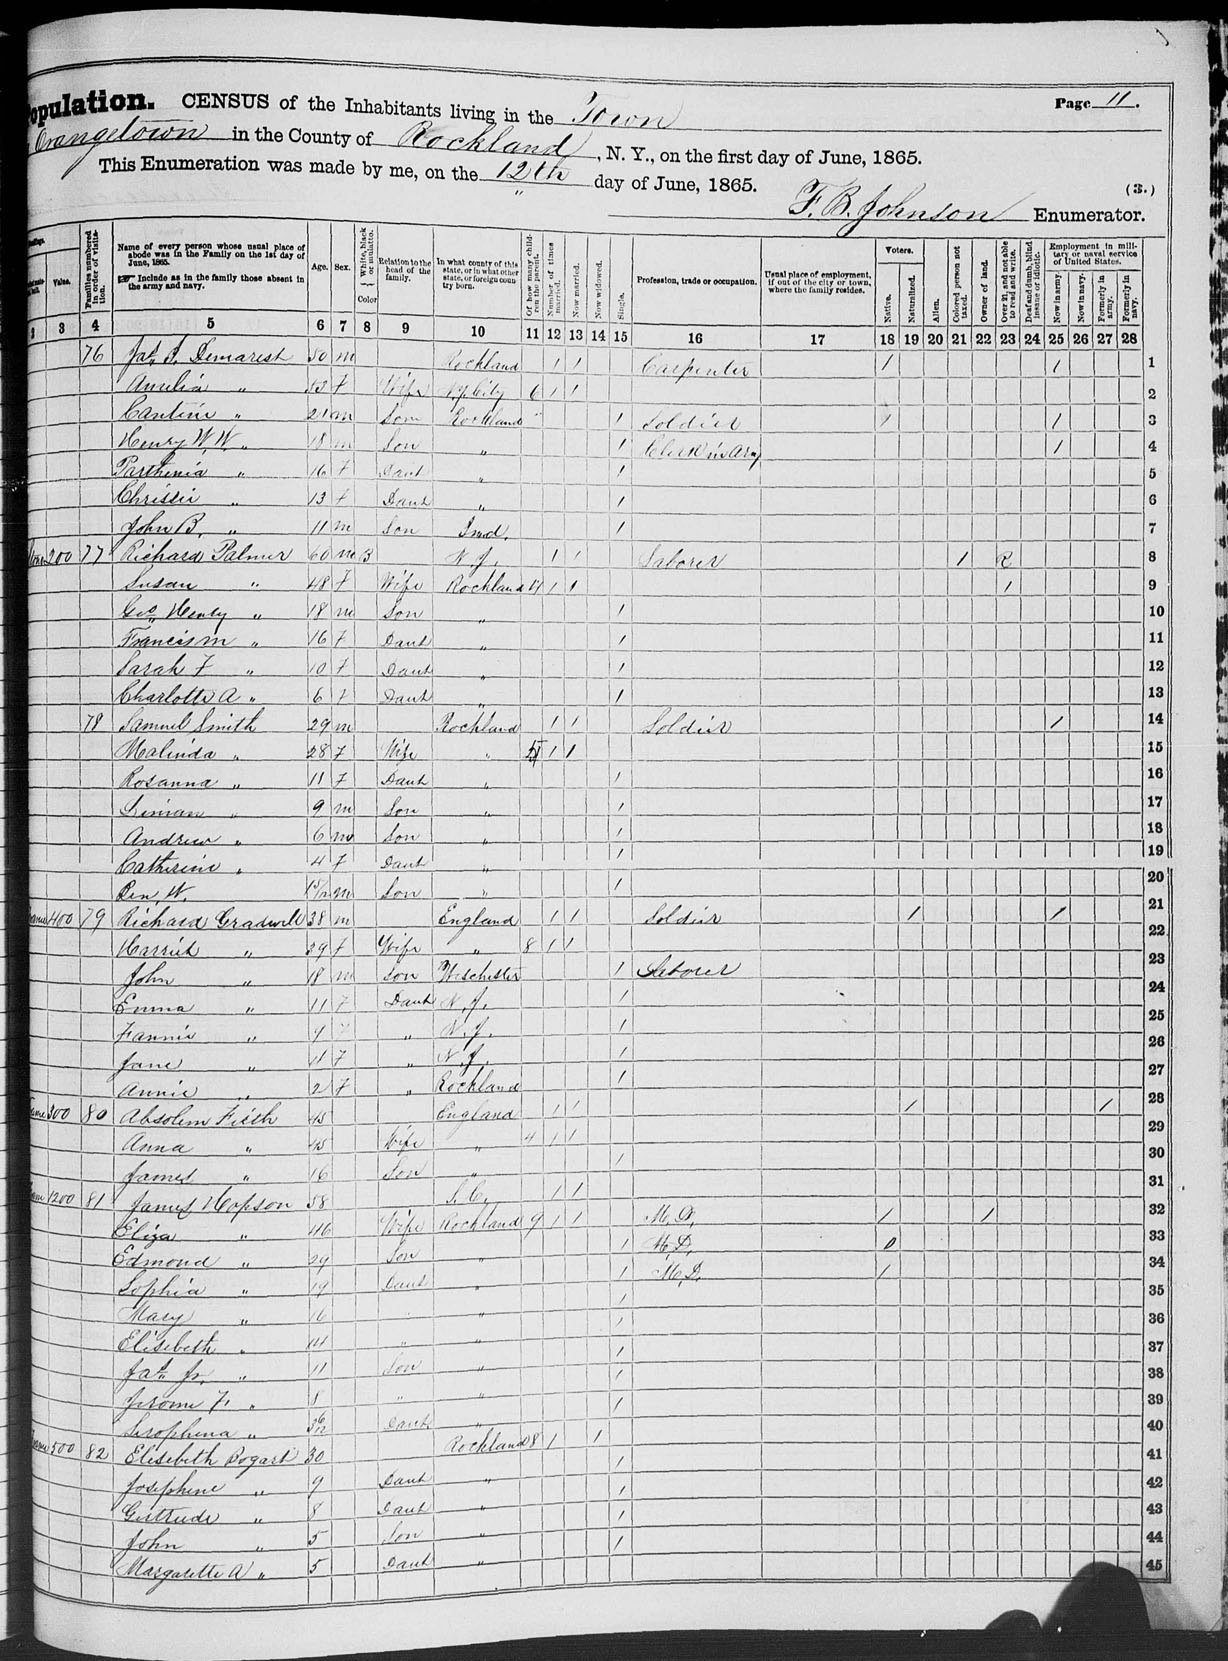 Population. CENSUS of the Inhabitants living in the Town Page 11.
Orangetown in the County of Rockland, N. Y., on the first day of June, 1865.
This Enumeration was made by me, on the 12th day of June, 1865. (3.)
F. B. Johnson Enumerator.
Value. Families numbered in order of visitation. Name of every person whose usual place of abode was in the Family on the 1st day of June, 1865. Include as in the family those absent in the army and navy. Age. Sex. Color White, black or mulatto. Relation to the head of the family. In what county of this state, or in what other state, or foreign country born. Of how many children the parent. Number of times married. Now married. Now widowed. Single. Profession, trade or occupation. Usual place of employment, if out of the city or town, where the family resides. Voters. Native. Naturalized. Alien. Colored person not taxed. Owner of land. Over 21, and not able to read and write. Deaf and dumb, blind insane or idiotic. Employment in military or naval service of United States. Now in army. Now in navy. Formerly in army. Formerly in navy.
3 4 5 6 7 8 9 10 11 12 13 14 15 16 17 18 19 20 21 22 23 24 25 26 27 28
76 Jas. S. Demarest 50 m Rockland 1 1 Carpenter 1 1 1
Amelia " 52 f Wife N.Y. City 6 1 1 2
Cantine " 21 m Son Rockland " 1 Soldier 1 1 3
Henry W. W. " 18 m Son " 1 Clerk in Army 1 4
Parthenia " 16 f Daut " 1 5
Chrissie " 13 f Daut " 1 6
John B. " 11 m Son Ind. 1 7
200 77 Richard Palmer 60 m B N. J. 1 1 Laborer 1 R 8
Susan " 48 f Wife Rockland 4 1 1 1 9
Geo Henry " 18 m Son " 1 10
Francis M " 16 f Daut " 1 11
Sarah F " 10 f Daut " 1 12
Charlotte A " 6 f Daut " 1 13
78 Samuel Smith 29 m Rockland 1 1 Soldier 1 14
Malinda " 28 f Wife " 1 1 15
Rosanna " 11 f Daut " 1 16
" 9 m Son " 1 17
Andrew " 6 m Son " 1 18
Catherine " 4 f Daut " 1 19
W. m Son " 1 20
400 79 Richard Gradwell 38 m England 1 1 Soldier 1 1 21
Harriet " 39 f Wife " 8 1 1 22
John " 18 m Son Weschester 1 Laborer 23
Emma " 11 f Daut N. J. 1 24
Fannie " 9 f " N. J. 1 25
Jane " 4 f " N. J. 1 26
Annie " 2 f " Rockland 1 27
300 80 Absolem Fieth 45 England 1 1 1 1 28
Anna " 45 Wife " 4 1 1 29
James " 16 Son " 1 30
1200 81 James Hopson 58 S. C. 1 1 31
Eliza " 46 Wife Rockland 9 1 1 M. D. 1 1 32
Edmond " 29 Son " 1 M. D. 33
Sophia " 19 Daut " 1 M. D. 1 34
Mary " 16 " " 1 35
Elisebeth " 14 " " 1 36
Jas. Jr. " 11 Son " 1 37
Jerome F. " 8 " " 1 38
Serophena " Daut " 1 39
500 82 Elisebeth Bogart 30 Rockland 8 1 1 40
Josephine " 9 Daut " 1 41
Gertrude " 8 Daut " 1 42
John " 5 Son " 1 43
Margarette A " 5 Daut " 1 44
45